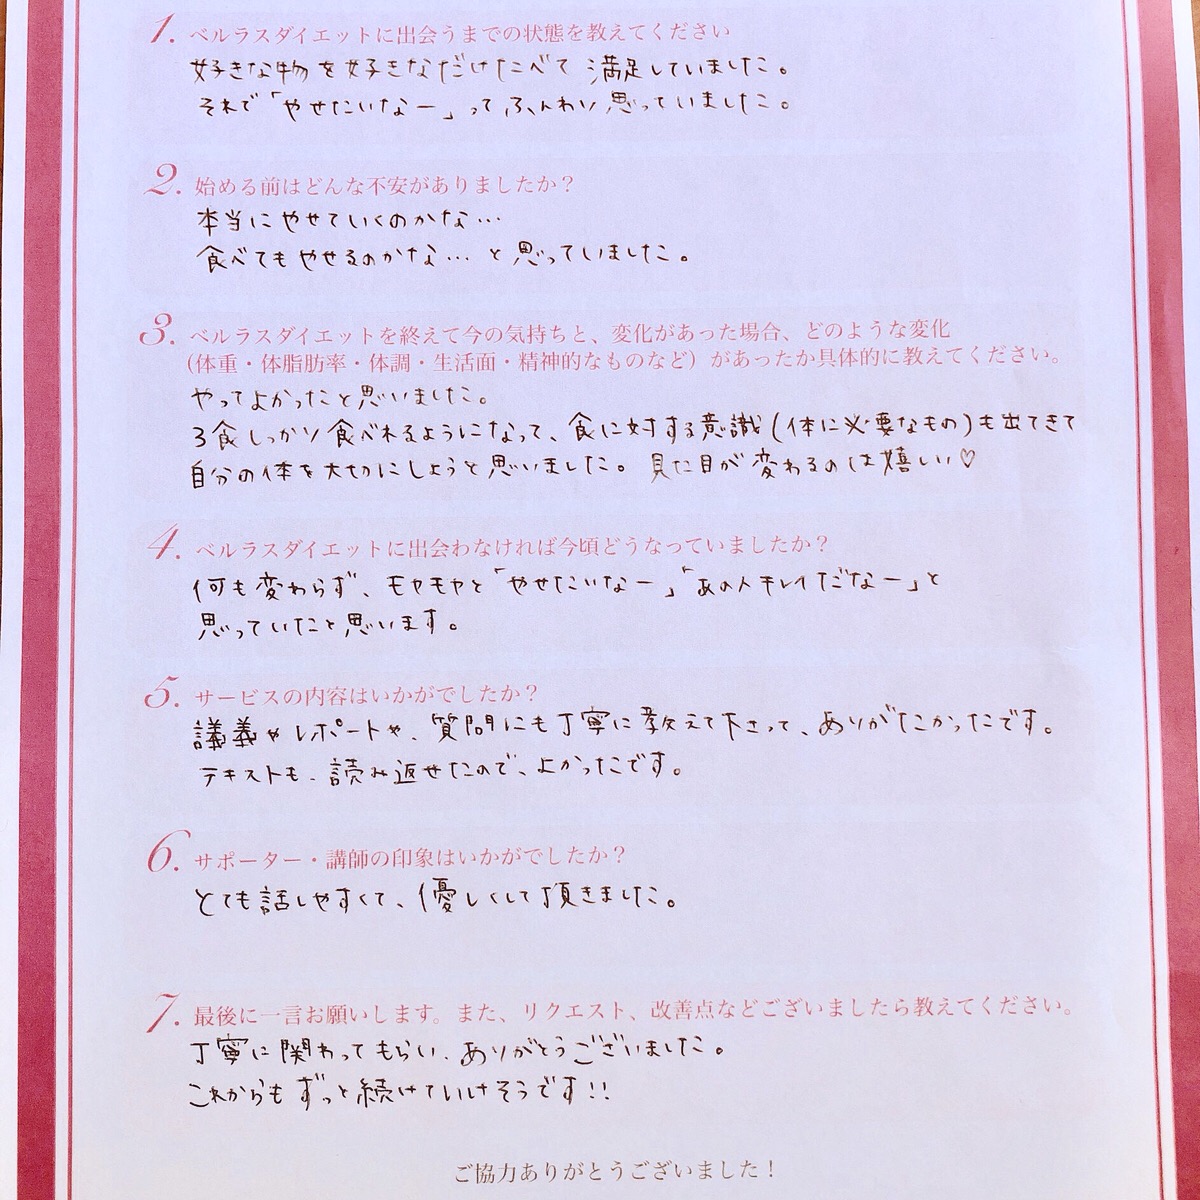 1. ベルラスダイエットに出会うまでの状態を教えてください
好きな物を好きなだけたべて満足していました。
それで「やせたいなー」ってふんわり思っていました。
2. 始める前はどんな不安がありましたか？
本当にやせていくのかな…
食べてもやせるのかな…と思っていました。
3. ベルラスダイエットを終えて今の気持ちと、変化があった場合、どのような変化
(体重・体脂肪率・体調・生活面・精神的なものなど）があったか具体的に教えてください。
やってよかったと思いました。
3食しっかり食べれるようになって、食に対する意識(体に必要なもの)も出てきて
自分の体を大切にしようと思いました。見た目が変わるのは嬉しい♡
4. ベルラスダイエットに出会わなければ今頃どうなっていましたか？
何も変わらず、モヤモヤと「やせたいなー」「あの人キレイだなー」と
思っていたと思います。
5. サービスの内容はいかがでしたか？
講義やレポートや、質問にも丁寧に教えて下さって、ありがたかったです。
テキストも、読み返せたので、よかったです。
6. サポーター・講師の印象はいかがでしたか？
とても話しやすくて、優しくして頂きました。
7. 最後に一言お願いします。また、リクエスト、改善点などございましたら教えてください。
丁寧に関わってもらい、ありがとうございました。
これからもずっと続けていけそうです!!
ご協力ありがとうございました！